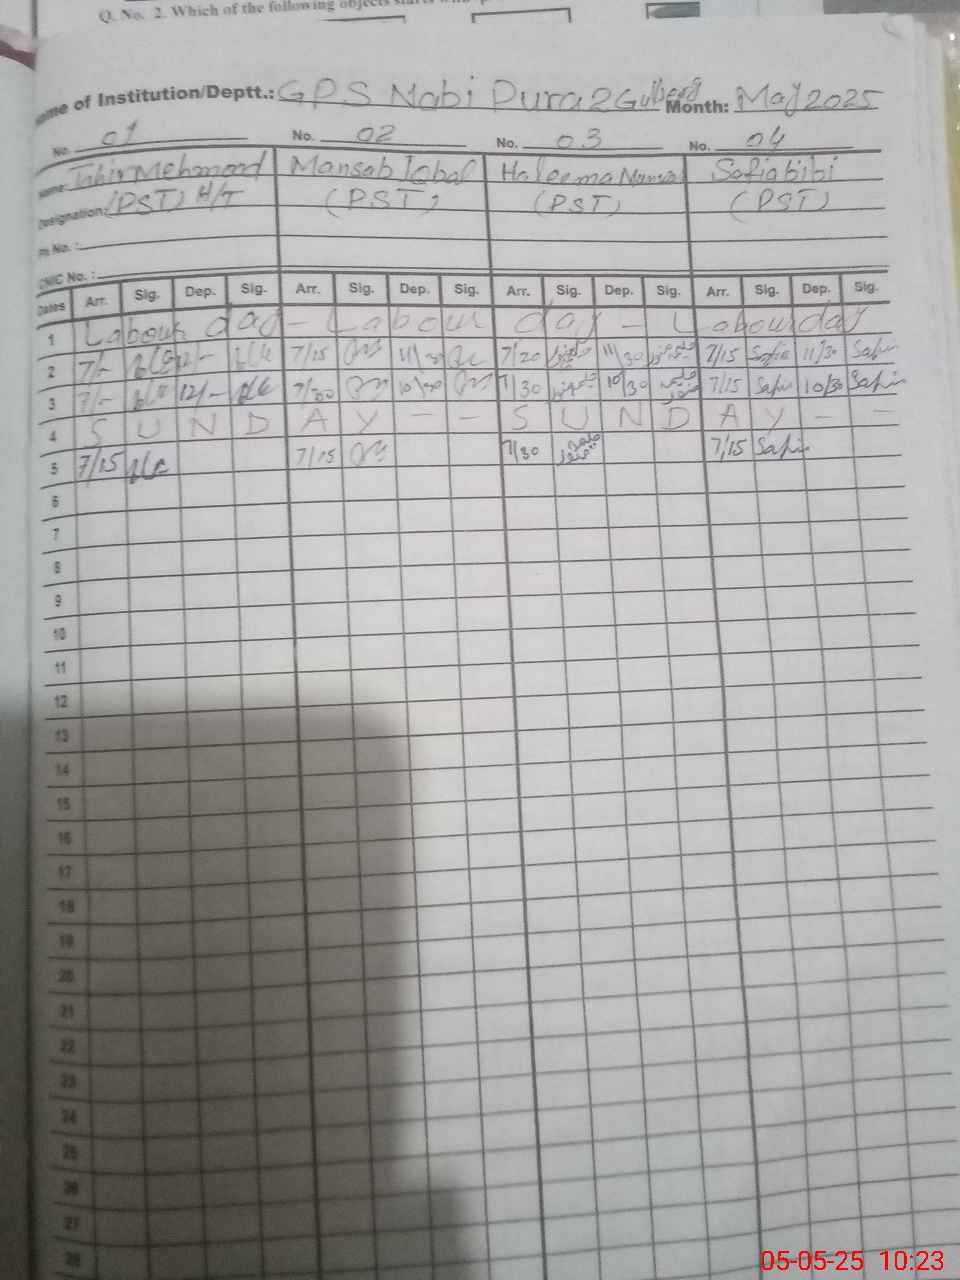 Q. No. 2. Which of the following objects starts with
me of Institution/Deptt.: GPS Nabi Pura 2 Gulberg Month: May 2025
No. 01 No. 02 No. 03 No. 04
Name: Tahir Mehmood Mansab Iqbal Haleema Sofia bibi
Designation: (PST) H/T (PST) (PST) (PST)
No. :
CNIC No. :
Dates Arr. Sig. Dep. Sig. Arr. Sig. Dep. Sig. Arr. Sig. Dep. Sig. Arr. Sig. Dep. Sig.
1 Labour day - Labour day - Labour day
2 7/- 12/- 7/15 11/30 7/20 11/30 7/15 Safia 11/30 Safia
3 7/- 12/- 7/30 10/30 7/30 10/30 7/15 Safia 10/30 Safia
4 S U N D A Y - - S U N D A Y - -
5 7/15 7/15 7/30 7/15 Safia
6
7
8
9
10
11
12
13
14
15
16
17
18
19
20
21
22
23
24
25
26
27
28
05-05-25 10:23